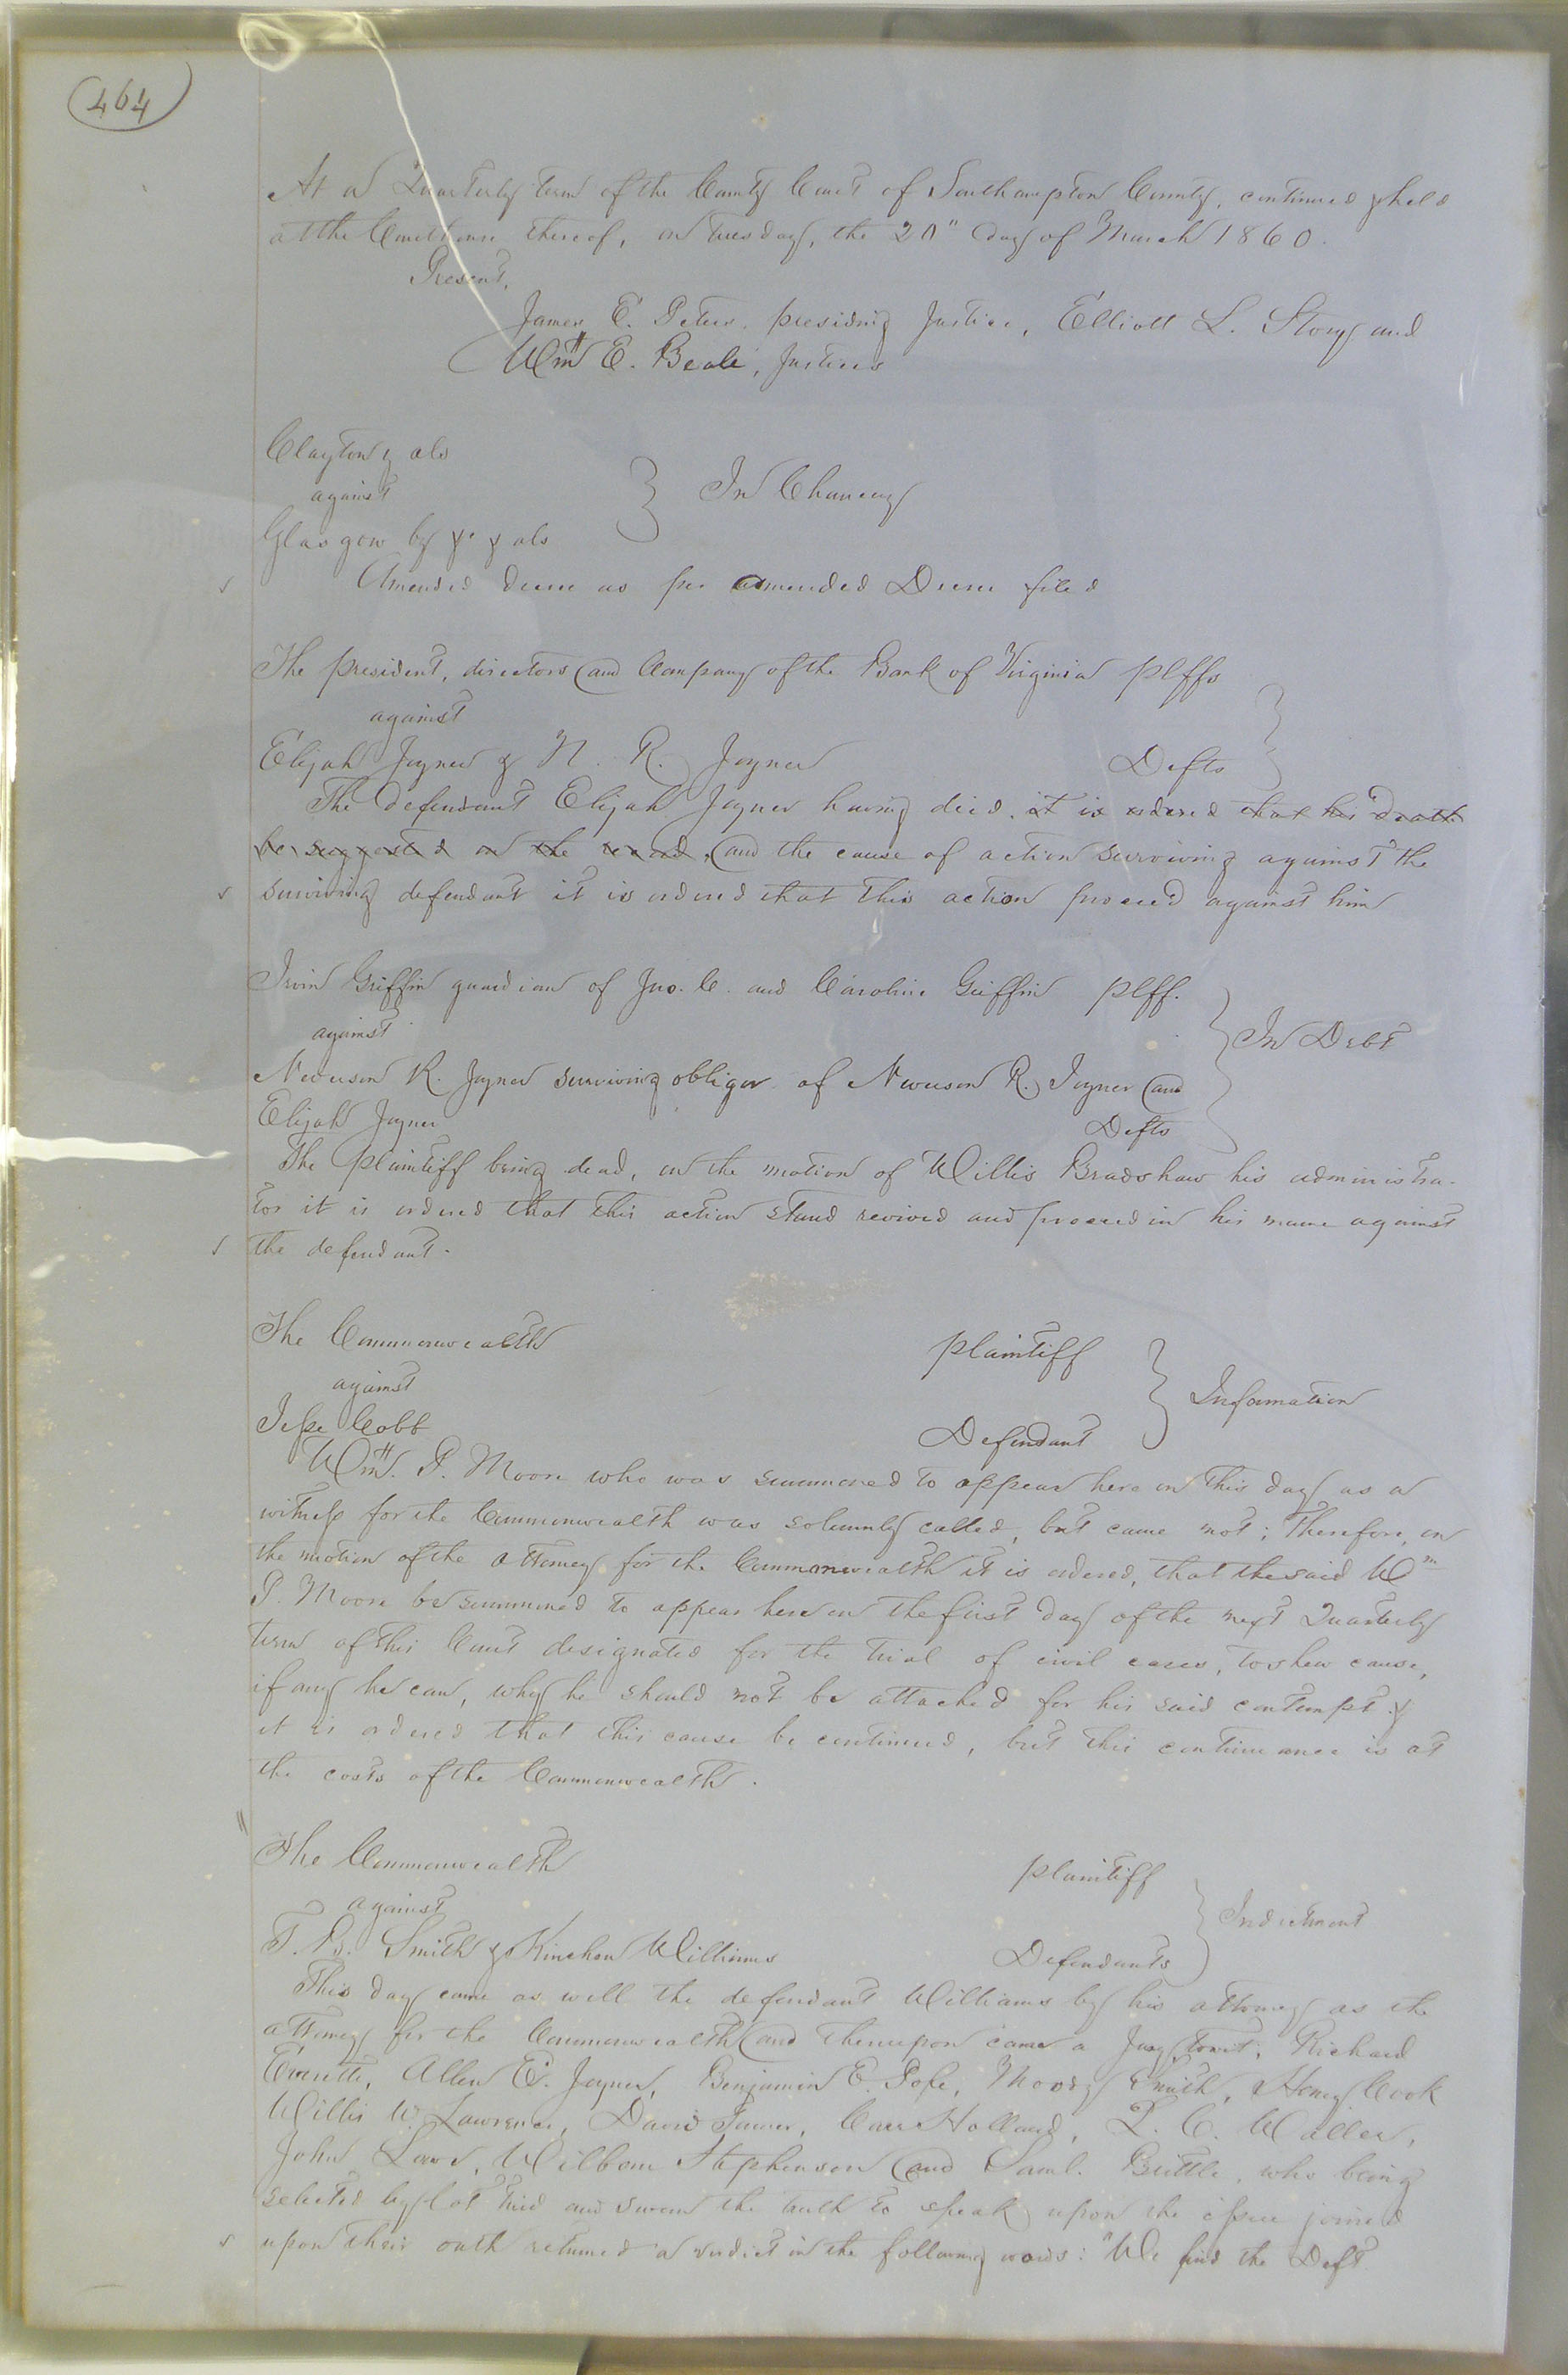 464
At a Quarterly term of the County Court of Southampton County, continued & held
at the Courthouse thereof, on Tuesday, the 20" day of March 1860.
Present,
James E. Peters, presiding Justice, Elliott L. Story and
Wm E. Beale, Justices
Clayton & als
against } In Chancery
Glasgow by &c & als
Amended Decree as per amended Decree filed
The president, directors and Company of the Bank of Virginia plffs
against
Elijah Joyner & N. R. Joyner Defts }
The defendant Elijah Joyner having died, it is ordered that his death
be suggested on the record, and the cause of action surviving against the
surviving defendant it is ordered that this action proceed against him
Irvin Griffin guardian of Jno. C. and Caroline Griffin plff.
against } In Debt
Newsom R. Joyner surviving obligor of Newsom R. Joyner and
Elijah Joyner Defts
The plaintiff being dead, on the motion of Willis Bradshaw his administra-
tor it is ordered that this action stand revived and proceed in his name against
the defendant.
The Commonwealth plaintiff
against } Information
Jesse Cobb Defendant
Wm. P. Moore who was summoned to appear here on this day as a
witness for the Commonwealth was solemnly called, but came not; Therefore, on
the motion of the attorney for the Commonwealth it is ordered, that the said Wm
P. Moore be summoned to appear here on the first day of the next Quarterly
term of this Court designated for the trial of civil cases, to shew cause,
if any he can, why he should not be attached for his said contempt. &
it is ordered that this cause be continued, but this continuance is at
the costs of the Commonwealth.
The Commonwealth plaintiff
against } Indictment
T. B. Smith & Kinchen Williams Defendants
This day came as well the defendant Williams by his attorney as the
attorney for the Commonwealth and thereupon came a Jury, towit, Richard
Everette, Allen E. Joyner, Benjamin E. Pope, Moody Smith, Henry Cook
Willis W. Lawrence, David Turner, Carr Holland, L. C. Waller,
John Love, Wilborn Stephenson and Saml. Brittle, who being
selected by lot tried and sworn the truth to speak upon the issue joined
upon their oath returned a verdict in the following words: "We find the Deft